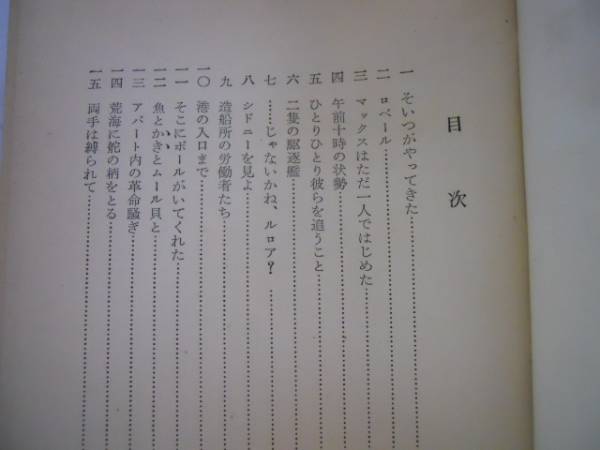 目次
一 そいつがやってきた
二 ロベール
三 マックスはただ一人ではじめた
四 午前十時の状勢
五 ひとりひとり彼らを追うこと
六 二隻の駆逐艦
七 ……じゃないかね、ルロア?
八 シドニーを見よ
九 造船所の労働者たち
一〇 港の入口まで
一一 そこにポールがいてくれた
一二 魚とかきとムール貝と
一三 アパート内の革命騒ぎ
一四 荒海に舵の柄をとる
一五 両手は縛られて